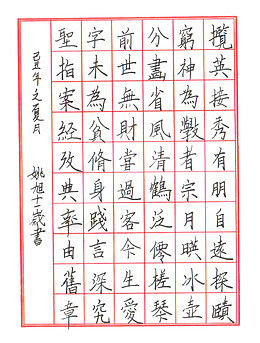 攬英接秀有朋自遠探賾
窮神為者宗月映冰壺
分畫省風清鶴泛槎琴
前世無財當過客今生愛
字未為貧脩身踐言深究
聖指案經攷典率由舊章
己丑年之夏月 姚旭十一歲書